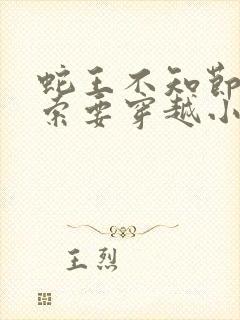 蛇王不知节
索要穿越小
王烈